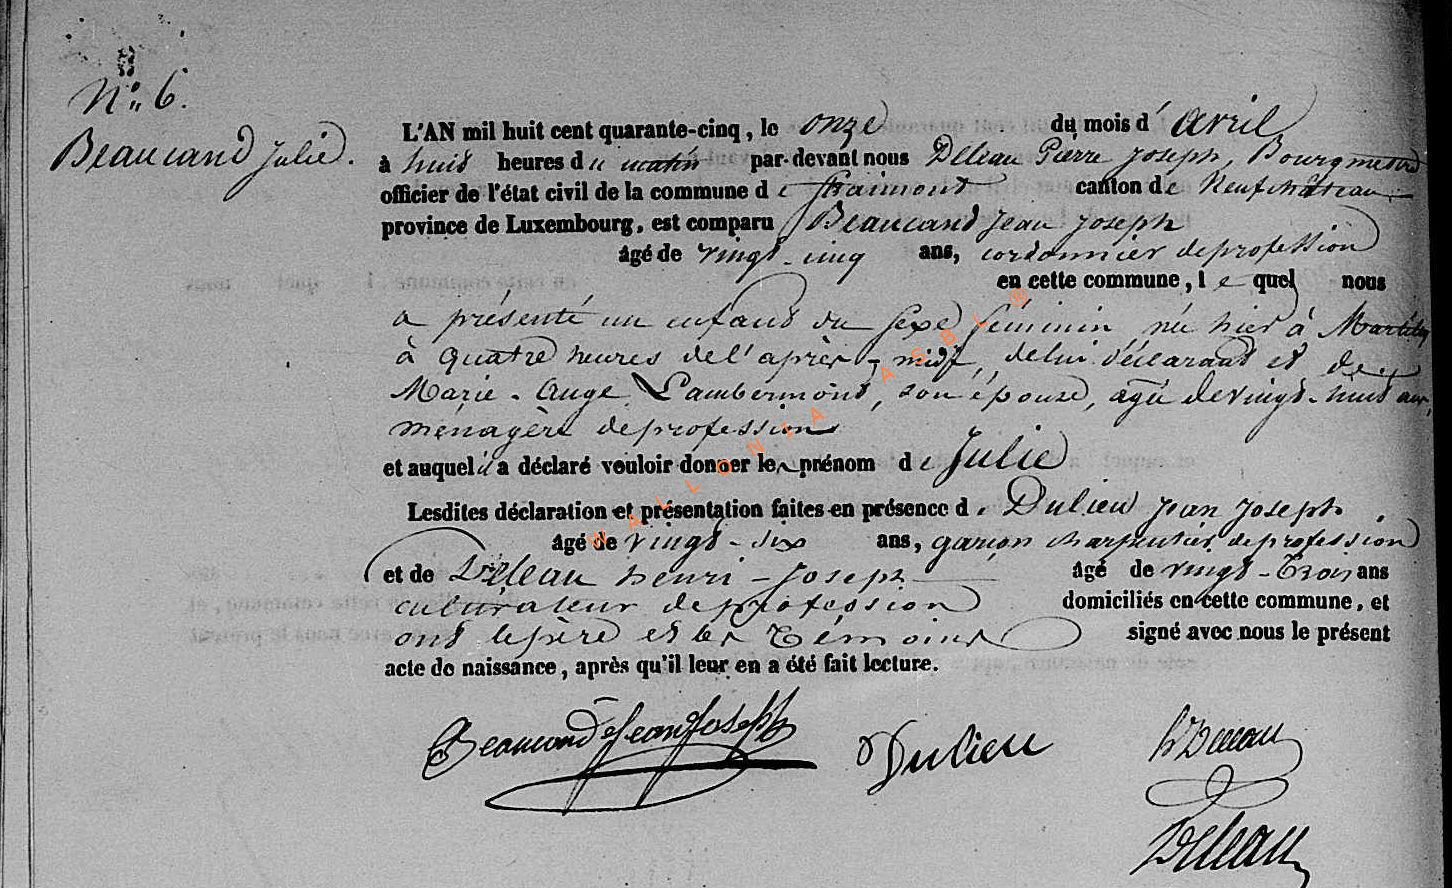 N° 6.
Beaucand Julie.
L'AN mil huit cent quarante-cinq, le onze du mois d' avril,
à huit heures du matin par-devant nous Deleau Pierre Joseph, Bourgmestre
officier de l'état civil de la commune de Straimont canton de Neufchâteau,
province de Luxembourg, est comparu Beaucand Jean Joseph
âgé de vingt-cinq ans, cordonnier de profession
en cette commune, lequel nous
a présenté un enfant du sexe féminin née hier à Martilly
à quatre heures de l'après-midi, de lui déclarant et de
Marie-Ange Lambermont, son épouse, agée de vingt-huit ans,
ménagère de profession
et auquel il a déclaré vouloir donner le prénom de Julie
Lesdites déclaration et présentation faites en présence de Dulieu Jean Joseph,
âgé de vingt-six ans, garçon charpentier de profession
et de Deleau henri-Joseph âgé de vingt-trois ans
cultivateur de profession domiciliés en cette commune, et
ont le père et les témoins signé avec nous le présent
acte de naissance, après qu'il leur en a été fait lecture.
Beaucand Jean Joseph Dulieu h Deleau
Deleau
WALLONIA ASBL ©